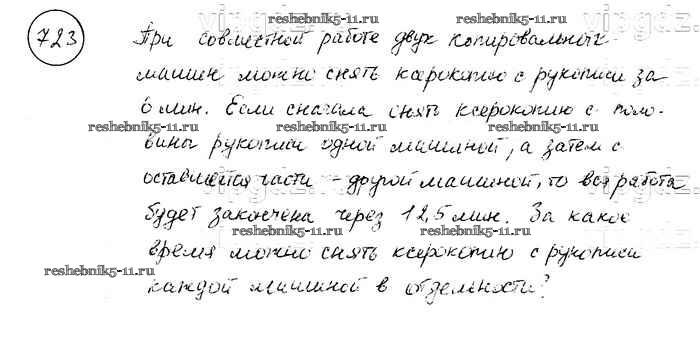 723
При совместной работе двух копировальных
машин можно снять ксерокопию с рукописи за
6 мин. Если сначала снять ксерокопию с поло-
вины рукописи одной машиной, а затем с
оставшейся части - другой машиной, то вся работа
будет закончена через 12,5 мин. За какое
время можно снять ксерокопию с рукописи
каждой машиной в отдельности?
reshebnik5-11.ru
reshebnik5-11.ru
reshebnik5-11.ru
reshebnik5-11.ru
reshebnik5-11.ru
reshebnik5-11.ru
reshebnik5-11.ru
reshebnik5-11.ru